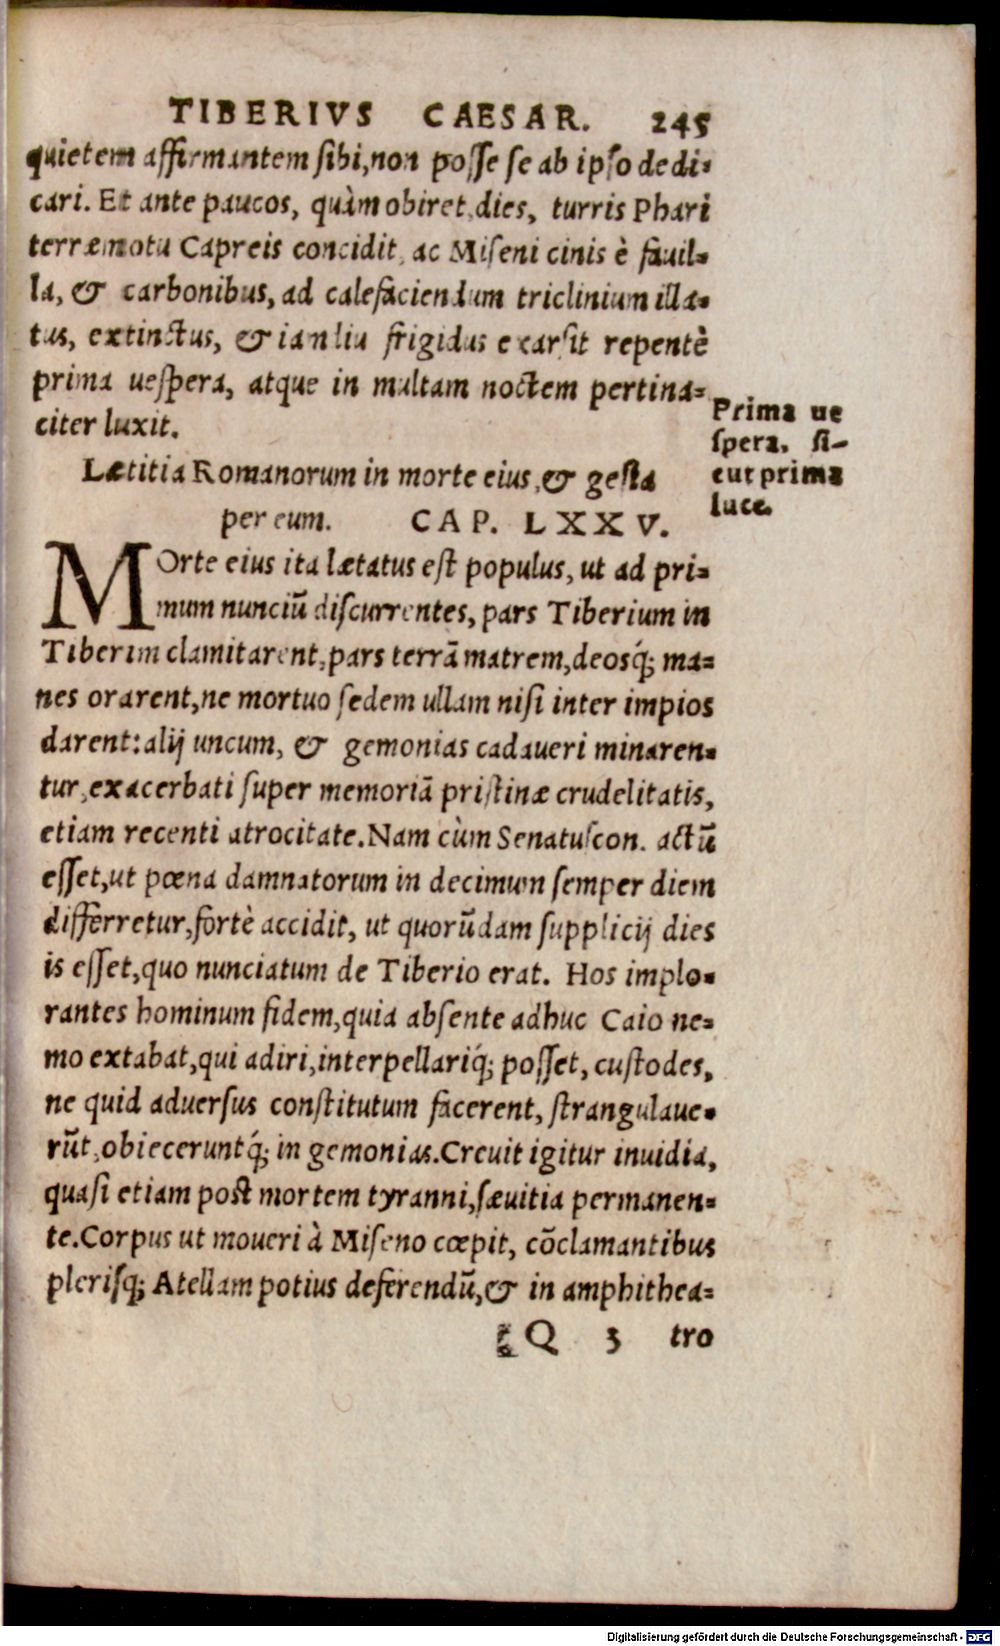 TIBERIVS CAESAR. 245
quietem affirmantem ſibi, non poſſe ſe ab ipſo dedi-
cari. Et ante paucos, quàm obiret, dies, turris Phari
terræmotu Capreis concidit, ac Miſeni cinis è fauil-
la, & carbonibus, ad calefaciendum triclinium illa-
tus, extinctus, & iamdiu frigidus exarſit repentè
prima ueſpera, atque in multam noctem pertina-
citer luxit.
Prima ue
ſpera. ſi-
cut prima
luce.
Lætitia Romanorum in morte eius, & geſta
per eum. CAP. LXXV.
MOrte eius ita lætatus eſt populus, ut ad pri-
mum nunciū diſcurrentes, pars Tiberium in
Tiberim clamitarent, pars terrā matrem, deosq́; ma-
nes orarent, ne mortuo ſedem ullam niſi inter impios
darent: alij uncum, & gemonias cadaueri minaren-
tur, exacerbati ſuper memoriā priſtinæ crudelitatis,
etiam recenti atrocitate. Nam cùm Senatuſcon. actū
eſſet, ut pœna damnatorum in decimum ſemper diem
differretur, fortè accidit, ut quorūdam ſupplicij dies
is eſſet, quo nunciatum de Tiberio erat. Hos implo-
rantes hominum fidem, quia abſente adhuc Caio ne-
mo extabat, qui adiri, interpellariq́; poſſet, cuſtodes,
ne quid aduerſus conſtitutum facerent, ſtrangulaue-
rūt, obieceruntq́; in gemonias. Creuit igitur inuidia,
quaſi etiam poſt mortem tyranni, ſæuitia permanen-
te. Corpus ut moueri à Miſeno cœpit, cōclamantibus
pleriſq; Atellam potius deferendū, & in amphithea-
Q 3 tro
Digitalisierung gefördert durch die Deutsche Forschungsgemeinschaft - DFG